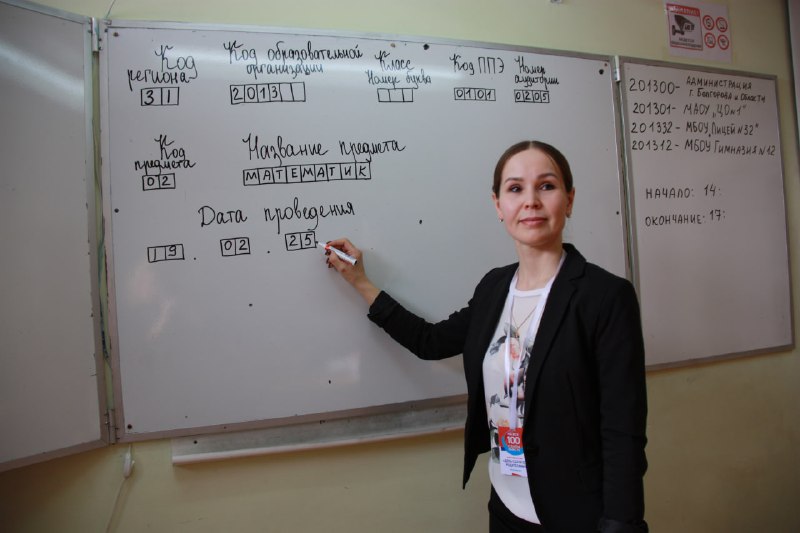 Код региона
31
Код образовательной организации
20131
Класс
Номер буква
Код ППЭ
0101
Номер аудитории
0205
Код предмета
02
Название предмета
МАТЕМАТИК
Дата проведения
19.02.25
201300- АДМИНИСТРАЦИЯ
г. БЕЛГОРОДА и ОБЛАСТИ
201301- МАОУ "ЦО №1"
201332- МБОУ "ЛИЦЕЙ №32"
201312- МБОУ ГИМНАЗИЯ №12
НАЧАЛО: 14:
ОКОНЧАНИЕ: 17:
100